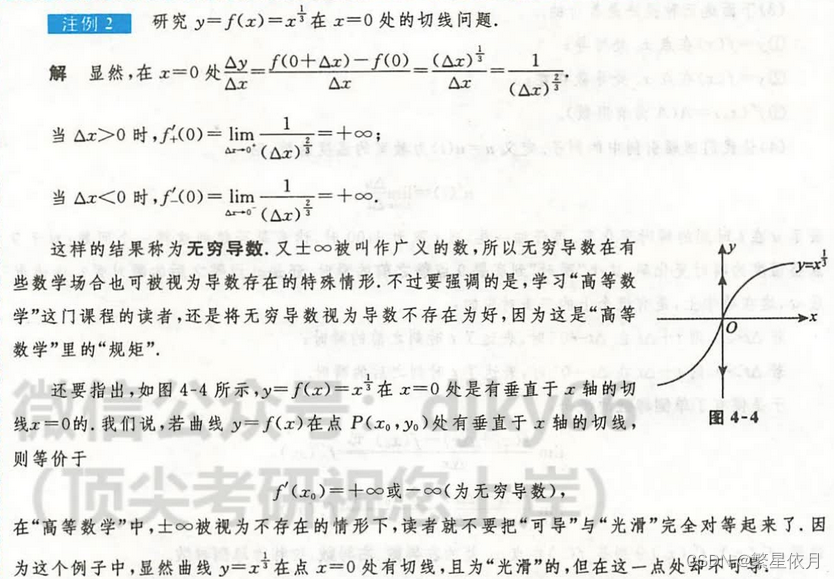 注例 2 研究 y=f(x)=x^{1/3} 在 x=0 处的切线问题.
解 显然,在 x=0 处 Δy/Δx = (f(0+Δx)-f(0))/Δx = (Δx)^{1/3}/Δx = 1/(Δx)^{2/3}.
当 Δx>0 时,f′₊(0)=lim_{Δx→0⁺} 1/(Δx)^{2/3}=+∞;
当 Δx<0 时,f′₋(0)=lim_{Δx→0⁻} 1/(Δx)^{2/3}=+∞.
这样的结果称为无穷导数.又±∞被叫作广义的数,所以无穷导数在有
些数学场合也可被视为导数存在的特殊情形.不过要强调的是,学习“高等数
学”这门课程的读者,还是将无穷导数视为导数不存在为好,因为这是“高等
数学”里的“规矩”.
y
y=x^{1/3}
O
x
图 4-4
还要指出,如图 4-4 所示,y=f(x)=x^{1/3} 在 x=0 处是有垂直于 x 轴的切
线x=0的.我们说,若曲线 y=f(x)在点 P(x₀,y₀)处有垂直于 x 轴的切线,
则等价于
f′(x₀)=+∞或-∞(为无穷导数),
在“高等数学”中,±∞被视为不存在的情形下,读者就不要把“可导”与“光滑”完全对等起来了.因
为这个例子中,显然曲线 y=x^{1/3} 在点 x=0 处有切线,且为“光滑”的,但在这一点处却不可导.
微信公众号:djky66
(顶尖考研祝您上岸)
CSDN @繁星依月